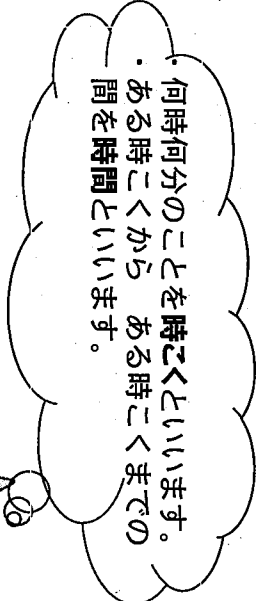 ・何時何分のことを時こくといいます。
・ある時こくから　ある時こくまでの
間を時間といいます。